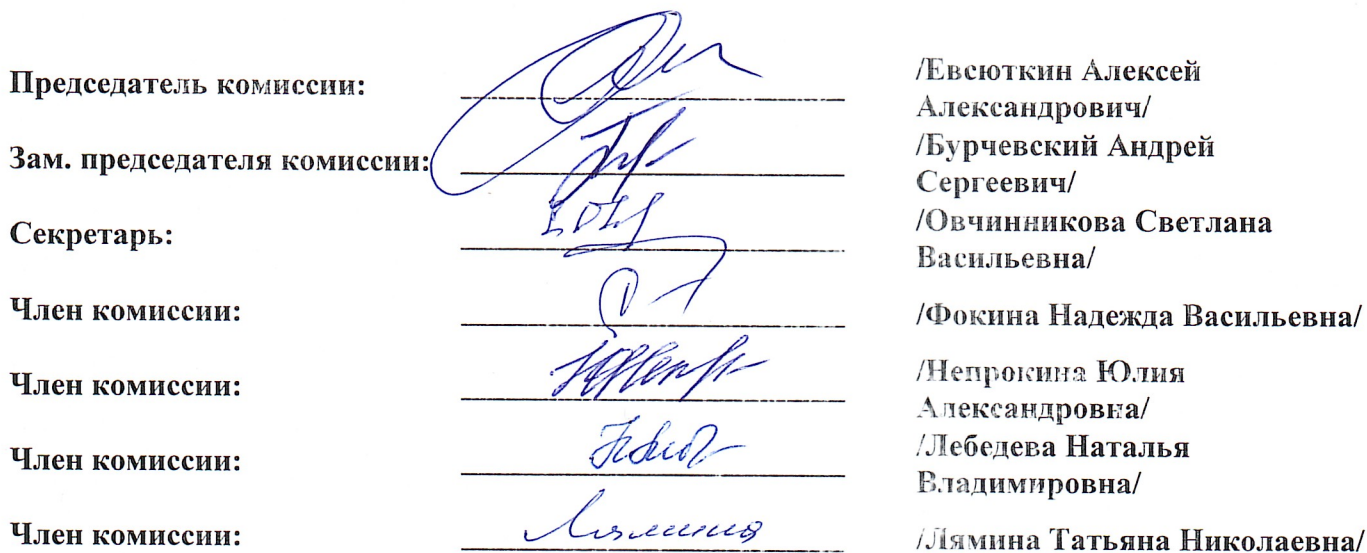 Председатель комиссии: /Евсюткин Алексей
Александрович/
Зам. председателя комиссии: /Бурчевский Андрей
Сергеевич/
Секретарь: /Овчинникова Светлана
Васильевна/
Член комиссии: /Фокина Надежда Васильевна/
Член комиссии: /Непрокина Юлия
Александровна/
Член комиссии: /Лебедева Наталья
Владимировна/
Член комиссии: Лямина /Лямина Татьяна Николаевна/